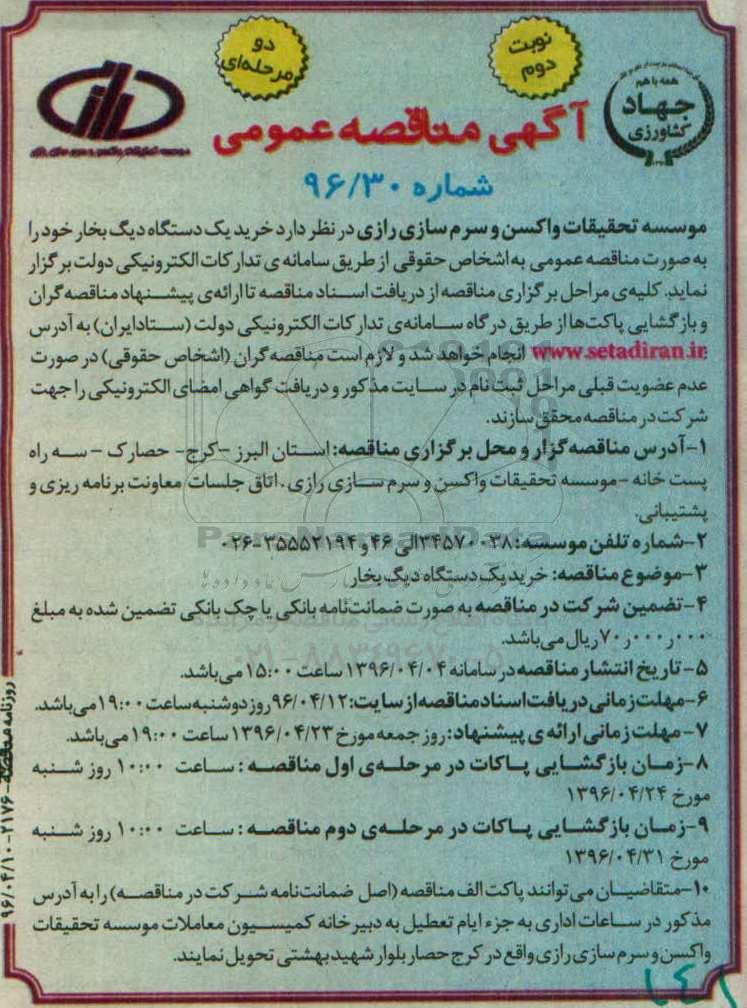 نوبت دوم
دو مرحله‌ای
همه با هم
جهاد
کشاورزی
آگهی مناقصه عمومی
شماره ۹۶/۳۰
موسسه تحقیقات واکسن و سرم سازی رازی در نظر دارد خرید یک دستگاه دیگ بخار خود را
به صورت مناقصه عمومی به اشخاص حقوقی از طریق سامانه ی تدارکات الکترونیکی دولت برگزار
نماید. کلیه‌ی مراحل برگزاری مناقصه از دریافت اسناد مناقصه تا ارائه‌ی پیشنهاد مناقصه گران
و بازگشایی پاکت‌ها از طریق درگاه سامانه‌ی تدارکات الکترونیکی دولت (ستاد ایران) به آدرس
www.setadiran.ir انجام خواهد شد و لازم است مناقصه گران (اشخاص حقوقی) در صورت
عدم عضویت قبلی مراحل ثبت نام در سایت مذکور و دریافت گواهی امضای الکترونیکی را جهت
شرکت در مناقصه محقق سازند.
۱-آدرس مناقصه گزار و محل برگزاری مناقصه: استان البرز -کرج- حصارک - سه راه
پست خانه -موسسه تحقیقات واکسن و سرم سازی رازی. اتاق جلسات معاونت برنامه ریزی و
پشتیبانی.
۲-شماره تلفن موسسه: ۳۴۵۷۰۰۳۸الی ۴۶ و ۳۵۵۵۲۱۹۴-۰۲۶
۳-موضوع مناقصه: خرید یک دستگاه دیگ بخار
۴-تضمین شرکت در مناقصه به صورت ضمانتنامه بانکی یا چک بانکی تضمین شده به مبلغ
۷۰٫۰۰۰٫۰۰۰ ریال می‌باشد.
۵- تاریخ انتشار مناقصه در سامانه ۱۳۹۶/۰۴/۰۴ ساعت ۱۵:۰۰ می‌باشد.
۶-مهلت زمانی دریافت اسناد مناقصه از سایت: ۹۶/۰۴/۱۲ روز دوشنبه ساعت ۱۹:۰۰ می‌باشد.
۷- مهلت زمانی ارائه ی پیشنهاد: روز جمعه مورخ ۱۳۹۶/۰۴/۲۳ ساعت ۱۹:۰۰ می‌باشد.
۸-زمان بازگشایی پاکات در مرحله‌ی اول مناقصه : ساعت ۱۰:۰۰ روز شنبه
مورخ ۱۳۹۶/۰۴/۲۴
۹-زمان بازگشایی پاکات در مرحله‌ی دوم مناقصه : ساعت ۱۰:۰۰ روز شنبه
مورخ ۱۳۹۶/۰۴/۳۱
۱۰-متقاضیان می توانند پاکت الف مناقصه (اصل ضمانت‌نامه شرکت در مناقصه) را به آدرس
مذکور در ساعات اداری به جزء ایام تعطیل به دبیرخانه کمیسیون معاملات موسسه تحقیقات
واکسن و سرم سازی رازی واقع در کرج حصار بلوار شهید بهشتی تحویل نمایند.
روزنامه مناقصه - ۲۱۷۶ - ۹۶/۰۴/۱۰
ParsNamadData
۰۲۱-۸۸۳۴۹۶۷۰-۵